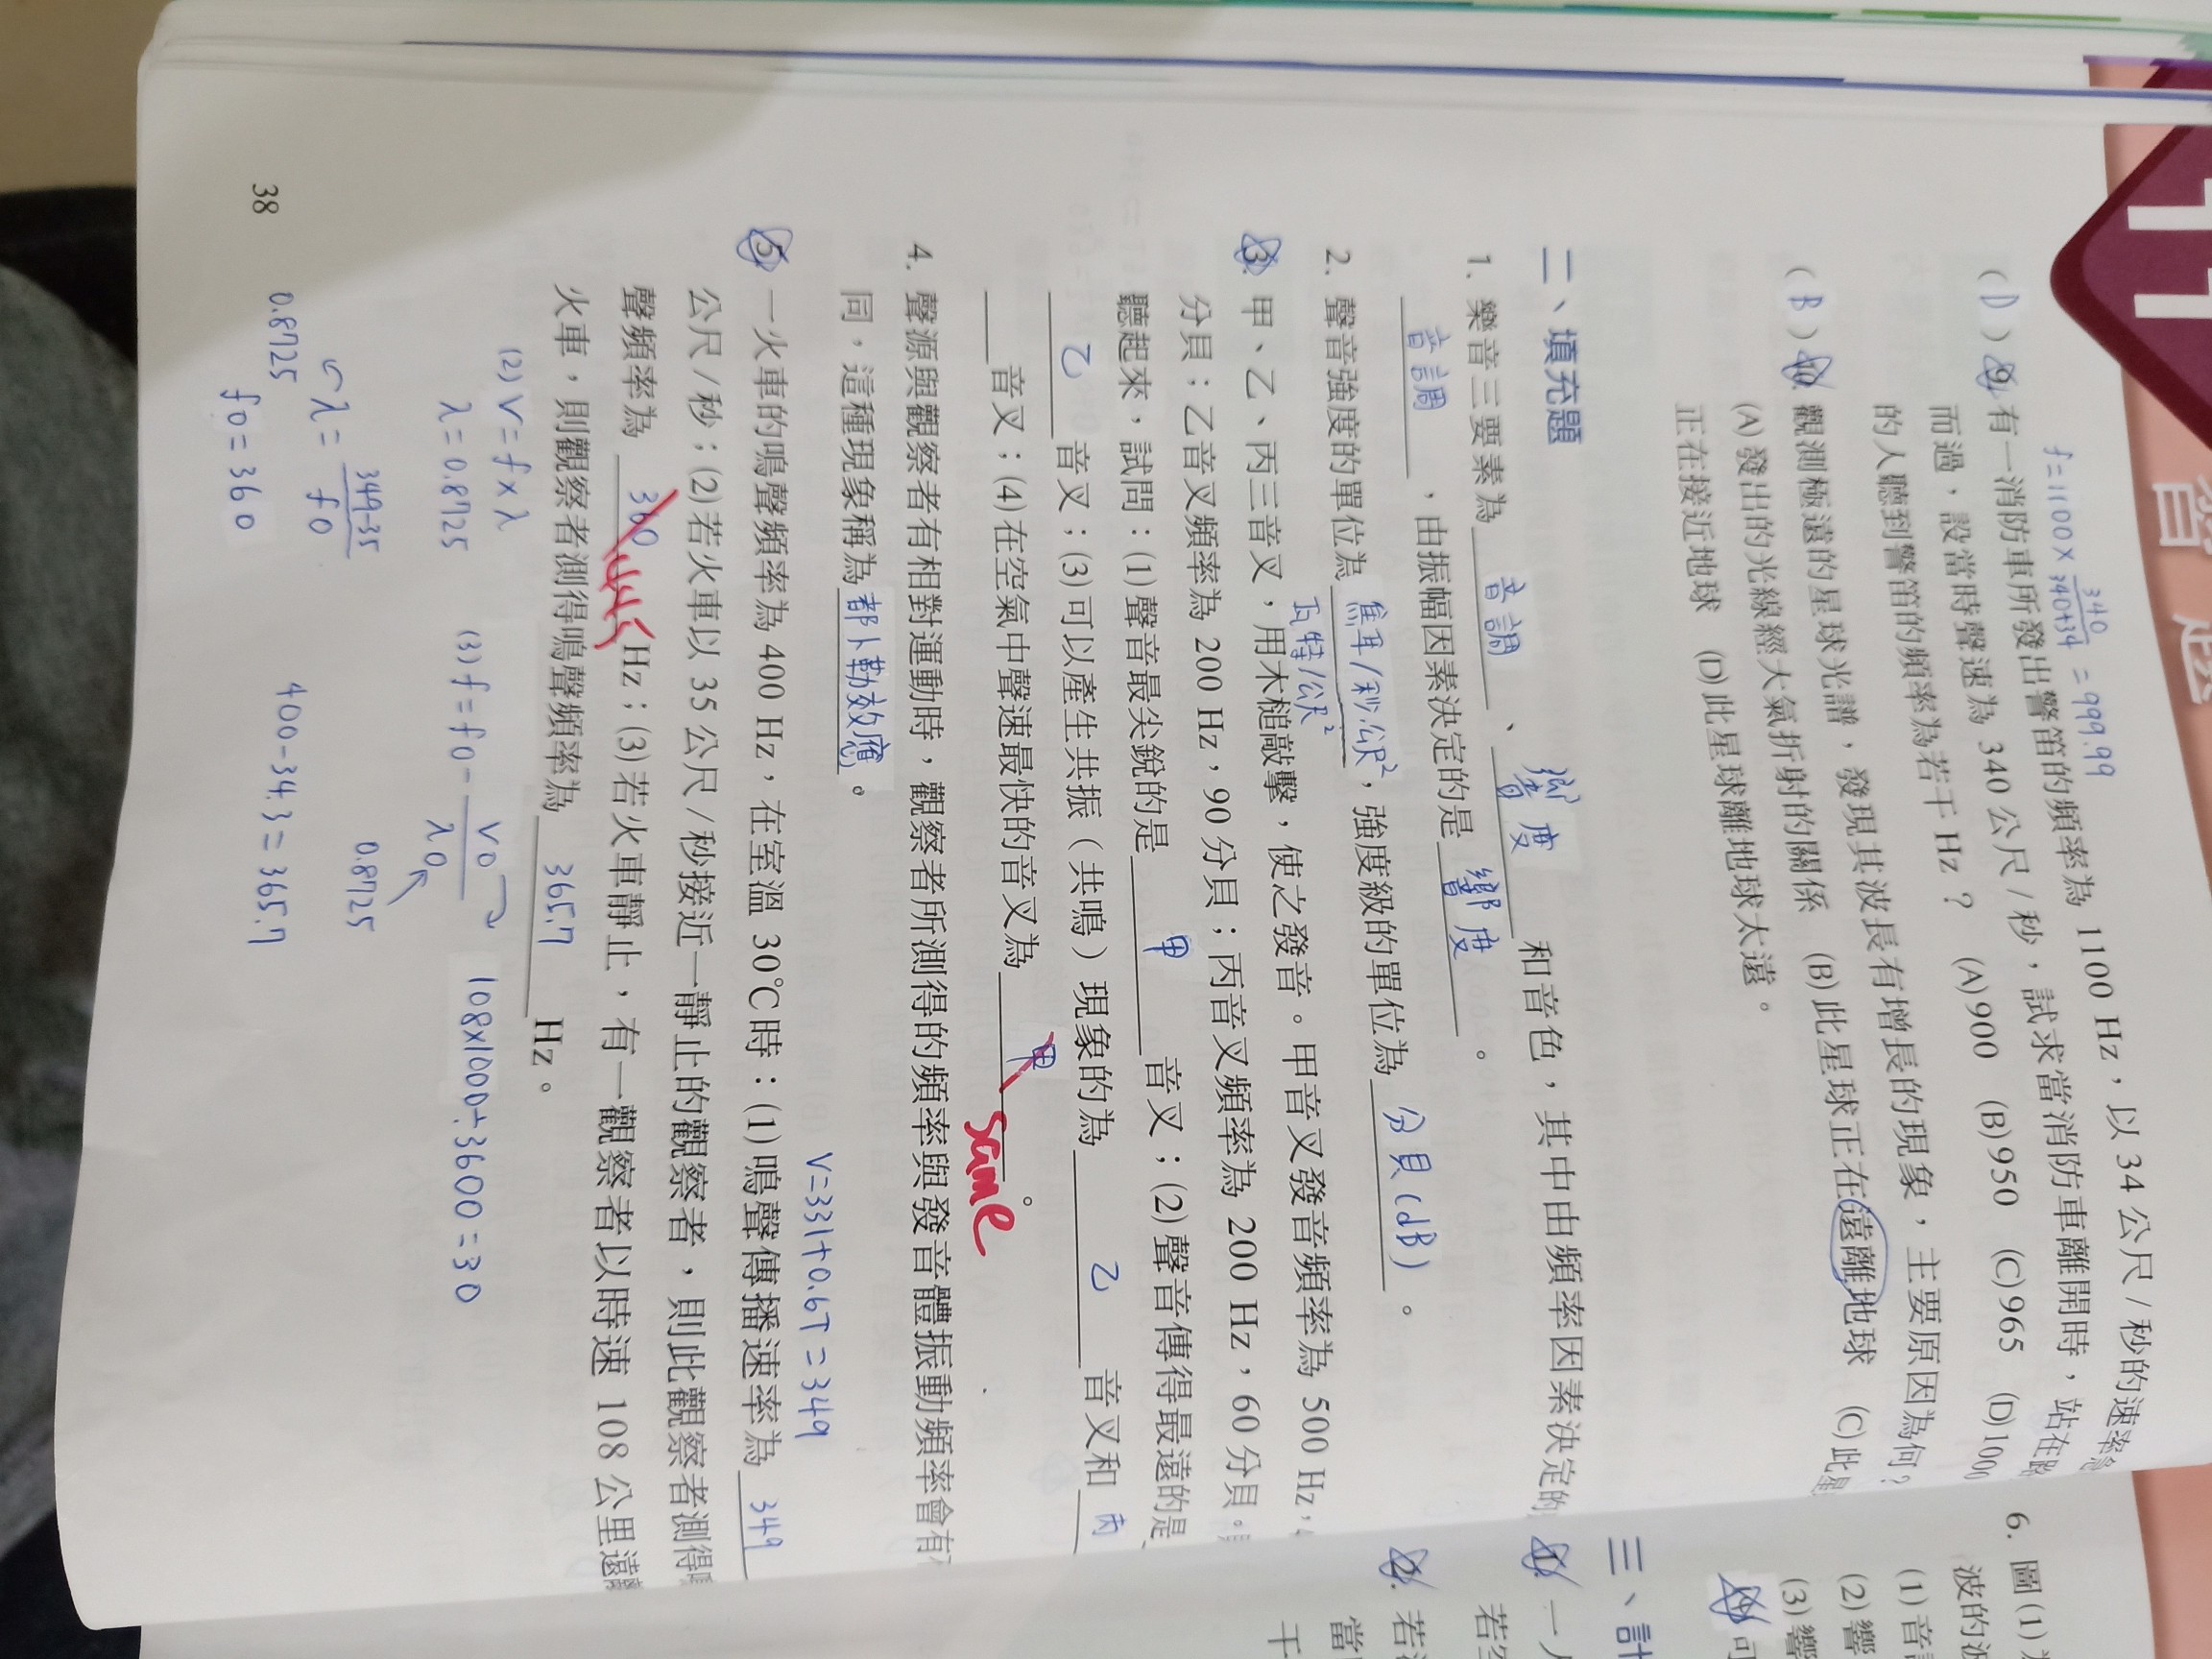 f=1100× 340/340+34 = 999.99
(D) 9. 有一消防車所發出警笛的頻率為 1100 Hz,以 34 公尺/秒的速率
而過,設當時聲速為 340 公尺/秒,試求當消防車離開時,站在
的人聽到警笛的頻率為若干 Hz? (A)900 (B)950 (C)965 (D)100
(B) 10. 觀測極遠的星球光譜,發現其波長有增長的現象,主要原因為何?
(A)發出的光線經大氣折射的關係 (B)此星球正在遠離地球 (C)此
正在接近地球 (D)此星球離地球太遠。
二、填充題
1. 樂音三要素為 音調 、 響度 和音色,其中由頻率因素決定的
音調 ,由振幅因素決定的是 響度 。
2. 聲音強度的單位為 焦耳/秒·公尺² ,強度級的單位為 分貝(dB) 。
瓦特/公尺²
3. 甲、乙、丙三音叉,用木槌敲擊,使之發音。甲音叉發音頻率為 500 Hz,
分貝;乙音叉頻率為 200 Hz,90 分貝;丙音叉頻率為 200 Hz,60 分貝。
聽起來,試問:(1)聲音最尖銳的是 甲 音叉;(2)聲音傳得最遠的是
乙 音叉;(3)可以產生共振(共鳴)現象的為 乙 音叉和 丙
音叉;(4)在空氣中聲速最快的音叉為 甲 。
same
4. 聲源與觀察者有相對運動時,觀察者所測得的頻率與發音體振動頻率會有
同,這種現象稱為 都卜勒效應 。
V=331+0.6T=349
5. 一火車的鳴聲頻率為 400 Hz,在室溫 30°C時:(1)鳴聲傳播速率為 349
公尺/秒;(2)若火車以 35 公尺/秒接近一靜止的觀察者,則此觀察者測得
聲頻率為 360 Hz;(3)若火車靜止,有一觀察者以時速 108 公里遠
火車,則觀察者測得鳴聲頻率為 365.7 Hz。
(2) V=f×λ
λ=0.8725
λ= 349-35/f0
0.8725
f0=360
(3) f=f0- V0/λ0
0.8725
108×1000÷3600=30
400-34.3=365.7
38
6. 圖(1)
波的波
(1)音
(2)響
(3)響
可
三、計
1. 一人
若空
2. 若
當
干